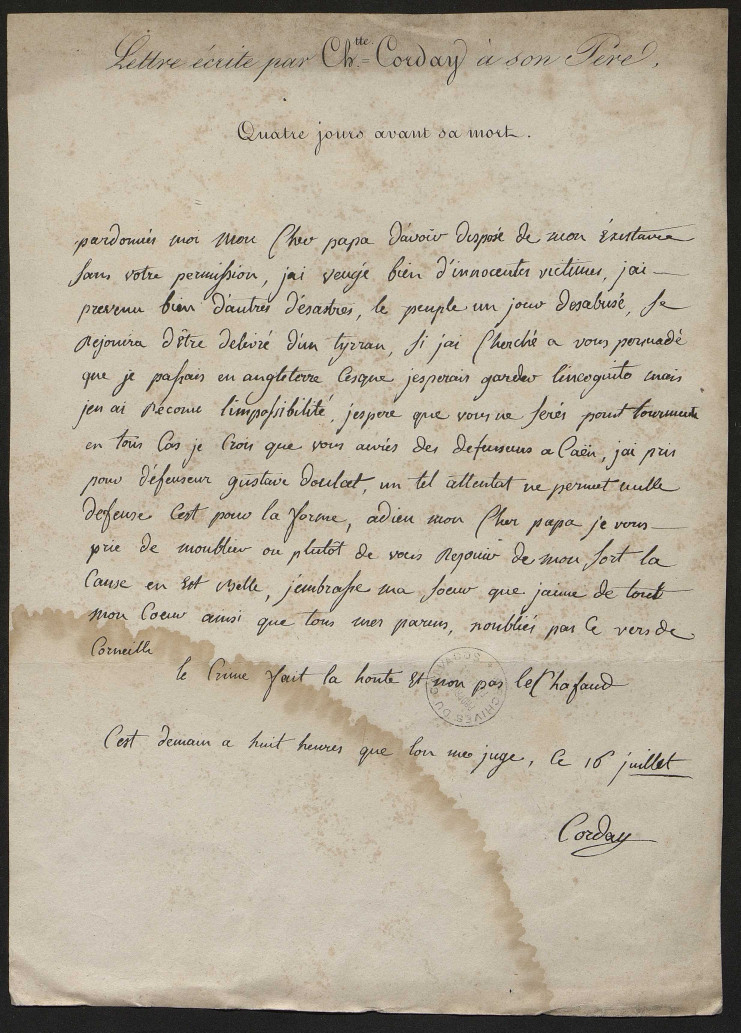 Lettre écrite par Ch.tte Corday à son Père.
Quatre jours avant sa mort.
pardonnés moi mon Cher papa d'avoir disposé de mon Existance
sans votre permission, jai vengé bien d'innocentes victimes, jai
prevenu bien d'autres désastres, le peuple un jour desabusé, se
Rejouira d'être delivré d'un tyrran, Si jai Cherché a vous persuadé
que je passais en angleterre cesque jesperais garder lincognito mais
jen ai Reconu limpossibilité, jespere que vous ne serés point tourmenté
en tous Cas je Crois que vous aurés des defenseurs a Caën, jai pris
pour défenseur gustave Doulcet, un tel attentat ne permet nulle
defense Cest pour la forme, adieu mon Cher papa je vous
prie de moublier ou plutot de vous Rejouir de mon sort la
Cause en Est Belle, jembrasse ma soeur que jaime de tout
mon Coeur ainsi que tous mes parens, noubliés pas Ce vers de
Corneille
le Crime fait la honte Et non pas leChafaud
Cest demain a huit heures que lon me juge, Ce 16 juillet
Corday
ARCHIVES DU CALVADOS